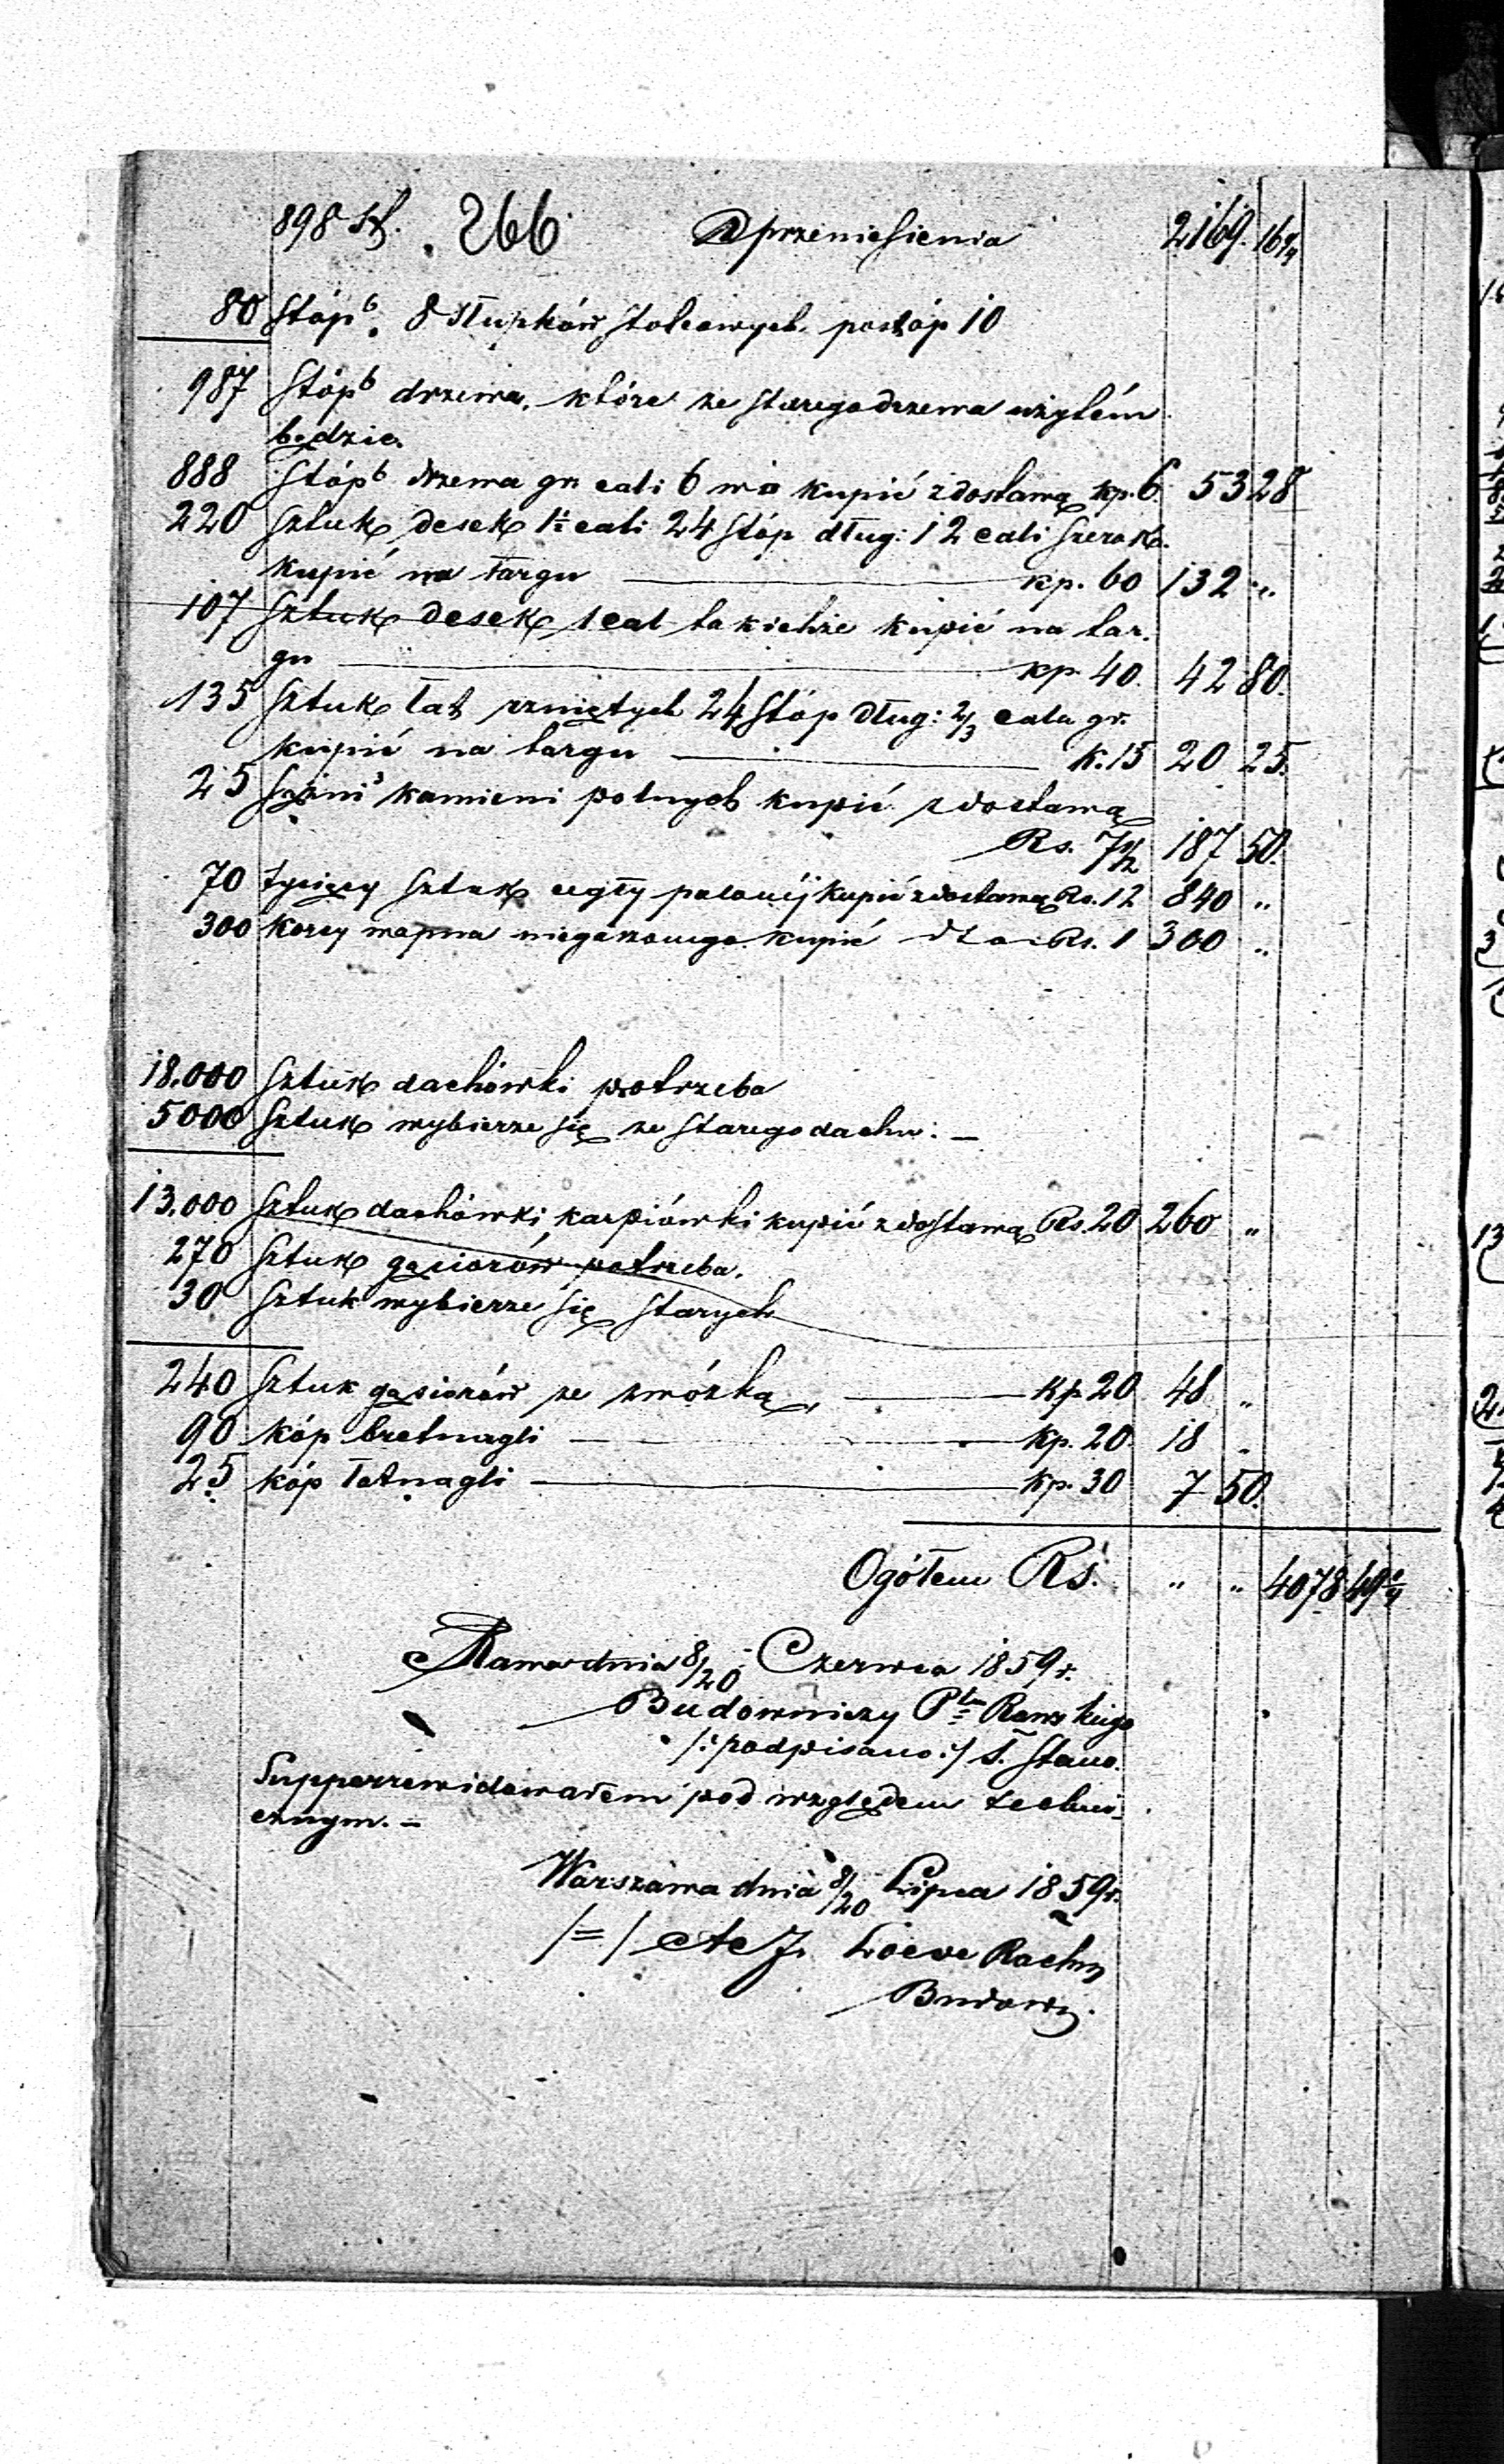 898 St. 266 Z przeniesienia 2169. 16 3/4
80 Stóp b. 8 Słupków Stolcowych po stóp 10
987 Stóp b drzewa, które ze starego drzewa użytém
będzie.
888 Stóp b drzewa gr. cali 6 kupić z dostawą kp. 6 53 28
220 Sztuk desek 1½ cali 24 Stóp dług: 12 cali szerok.
kupić na targu kp. 60 132 "
107 Sztuk desek 1 cal takichże kupić na tar.
gu kp. 40. 42 80.
135 Sztuk łat rzniętych 24 Stóp dług: 2/3 cala gr.
kupić na targu k. 15 20 25.
25 Sążni kamieni polnych kupić z dostawą
Rs. 7½ 187 50.
70 tysięcy Sztuk cegły palonéj kupić z dostawą Rs. 12 840 "
300 korcy wapna niegaszonego kupić dto Rs. 1 300 "
18.000 Sztuk dachówki potrzeba
5000 Sztuk wybierze się ze starego dachu. –
13.000 Sztuk dachówki karpiówki kupić z dostawą Rs. 20 260 "
270 Sztuk gąsiorów potrzeba.
30 Sztuk wybierze się starych
240 Sztuk gąsiorów ze zwózką, kp. 20 48 "
90 kóp bretnagli kp. 20 18 "
25 kóp łatnagli kp. 30 7 50.
Ogółem Rs. " " 4078 49 3/4
Rawa dnia 8/20 Czerwca 1859 r.
Budowniczy Ptu Rawskiego
/:podpisano:/
Supperrewidowałem pod względem techni-
cznym. –
Warszawa dnia 8/20 Lipca 1859 r.
/=/ Loewe Rachm
Budown.